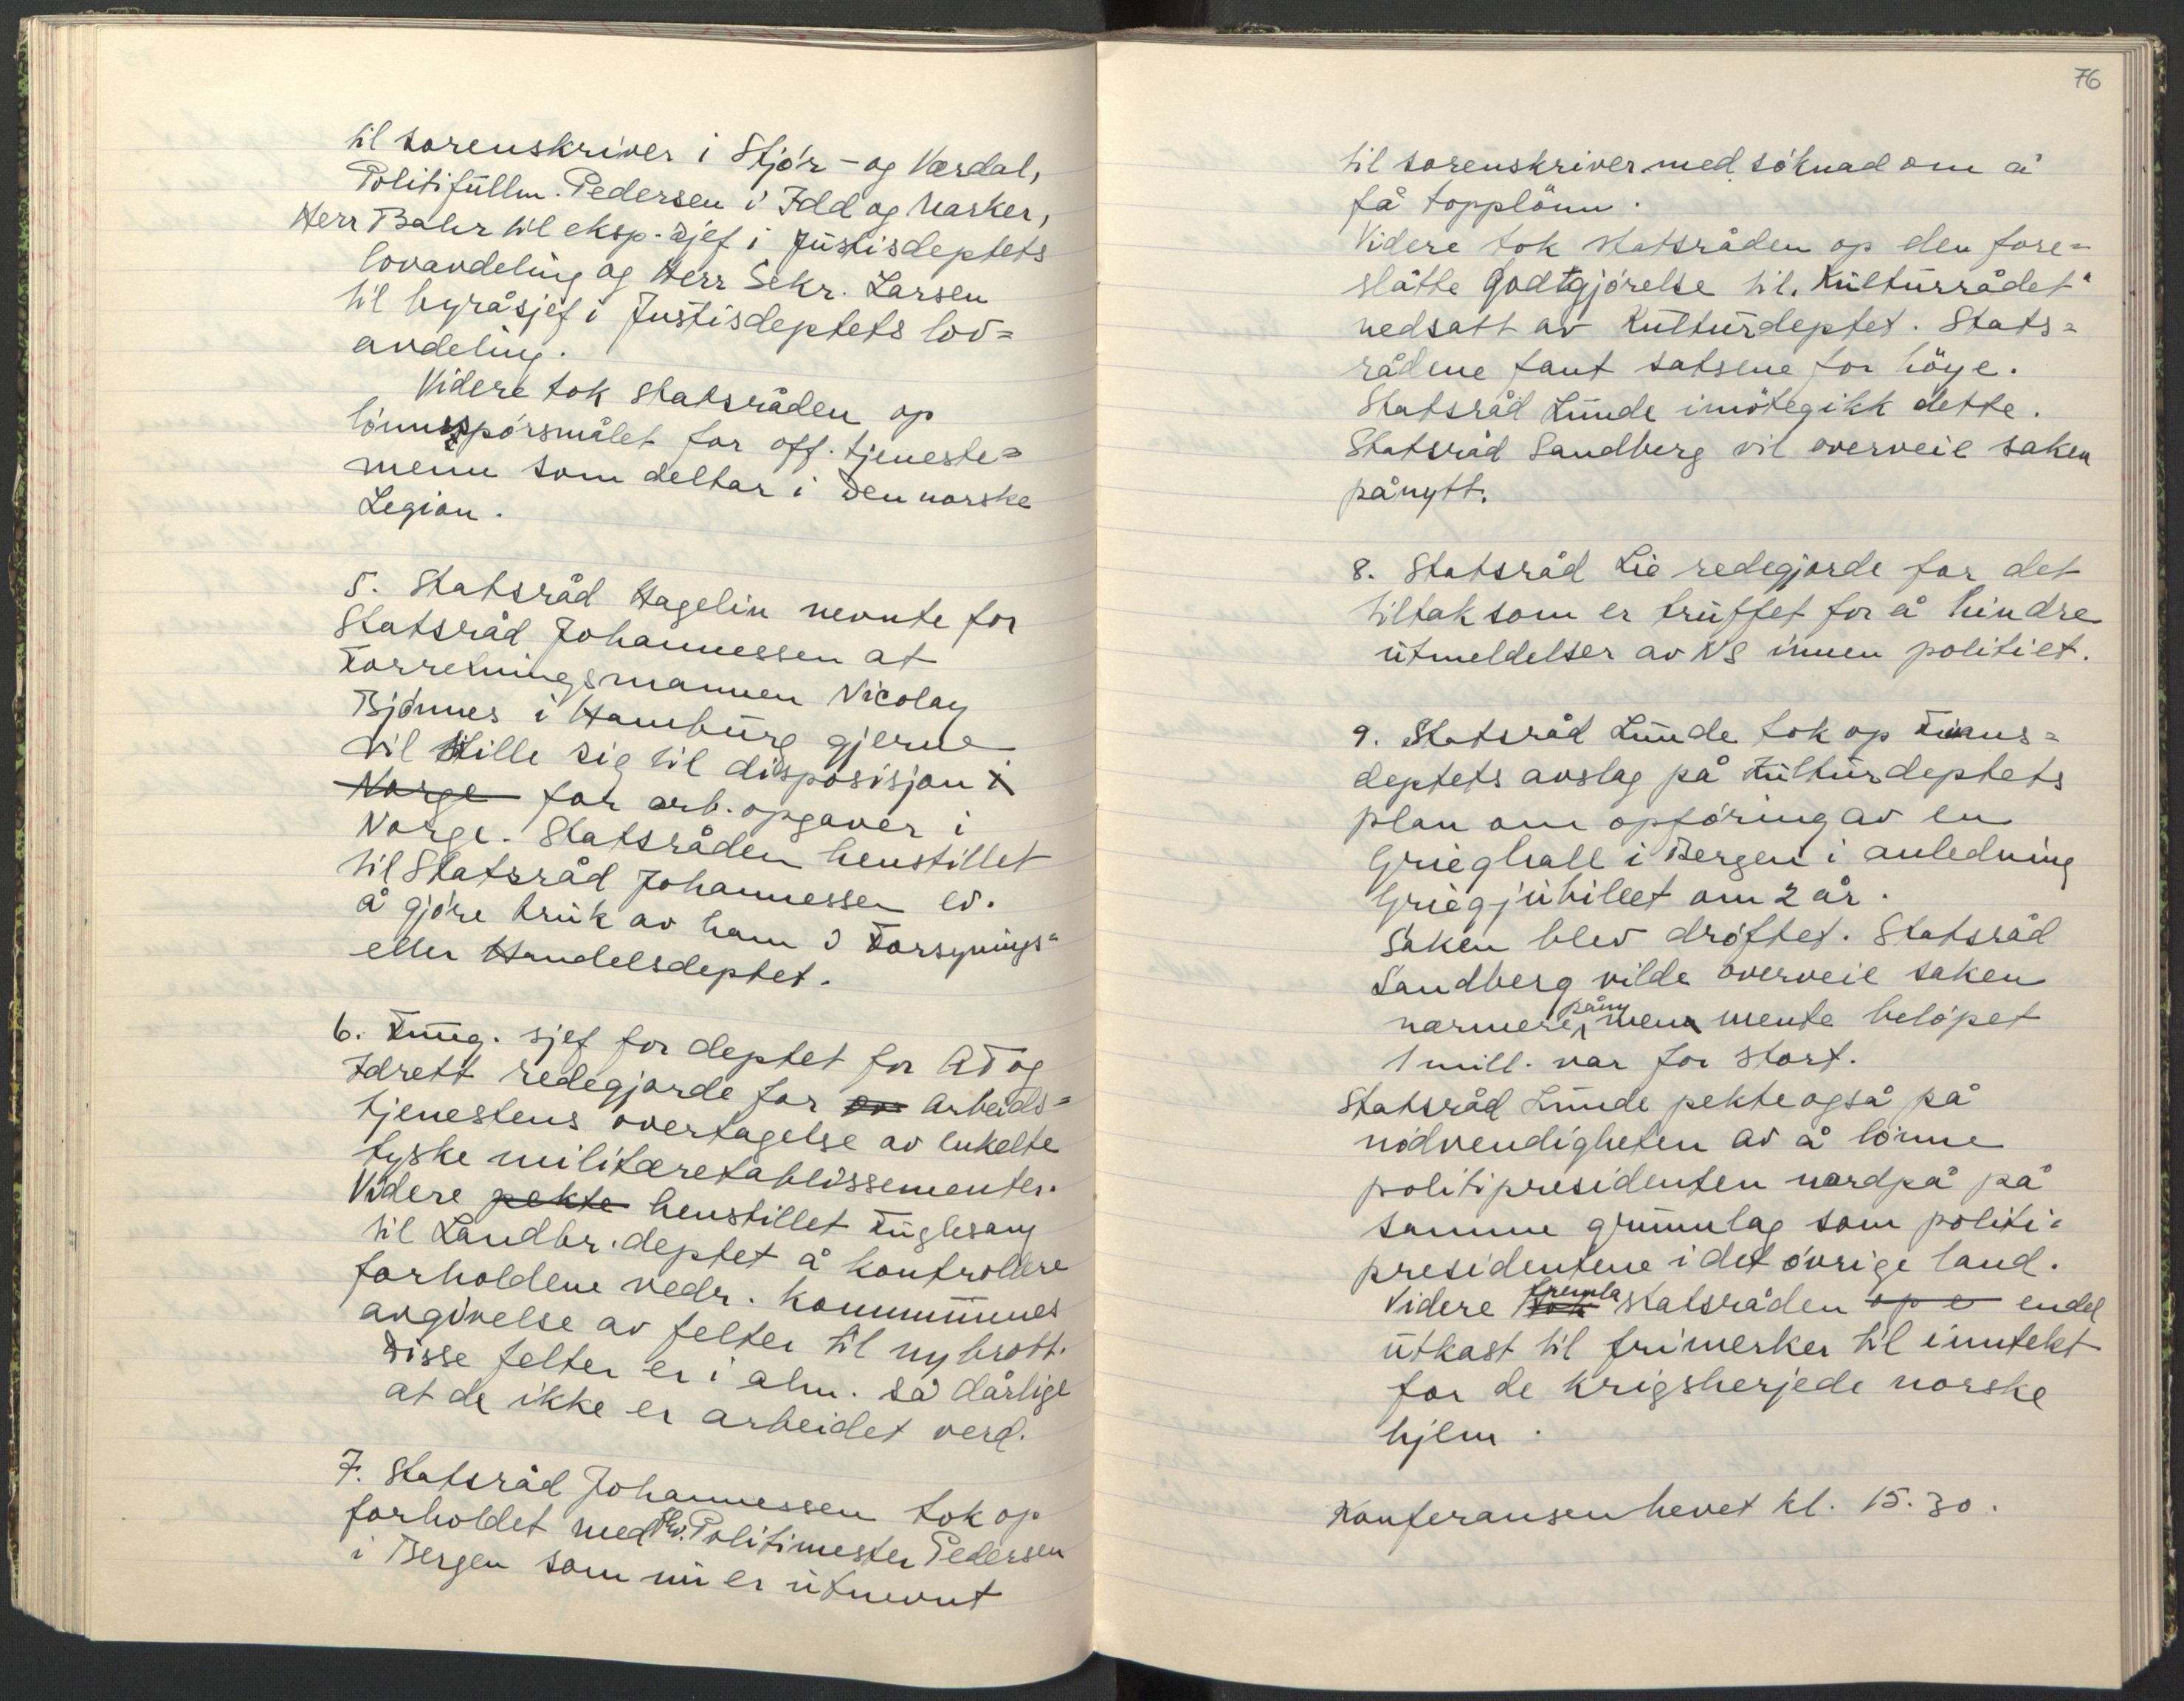 til sorenskriver i Stjór- og Værdal,
Politifullm. Pedersen i Idd og Marker,
Herr Bahr til eksp. sjef i Justisdeptets
lovavdeling og Herr Sekr. Larsen
til byråsjef i Justisdeptets lov=
avdeling.
Videre tok statsråden op
lönnsspórsmålet for off. tjeneste=
menn som deltar i Den norske
Legion.
5. Statsråd Hagelin nevnte for
Statsråd Johannessen at
Forretningsmannen Nicolay
Bjónnes i Hamburg gjerne
vil stille sig til disposisjon i
Norge for arb. opgaver i
Norge. Statsråden henstillet
til Statsråd Johannessen ev.
å gjóre bruk av ham i Forsynings=
eller Handelsdeptet.
6. Fung. sjef for deptet for AT og
Idrett redegjorde for Arbeids=
tjenestens overtagelse av enkelte
tyske militæretablissementer.
Videre pekte henstillet Fuglesang
til Landbr. deptet å kontrollere
forholdene vedr. kommunes
avgivelse av felter til nybrott.
Disse felter er i alm. så dårlige
at de ikke er arbeidet verd.
7. Statsråd Johannessen tok op
forholdet med Hr. Politimester Pedersen
i Bergen som nu er utnevnt
76
til sorenskriver med söknad om å
få topplönn.
Videre tok statsråden op den fore=
slåtte godtgjörelse til „Kulturrådet"
nedsatt av Kulturdeptet. Stats=
rådene fant satsene for höye.
Statsråd Lunde imötegikk dette.
Statsråd Sandberg vil overveie saken
pånytt.
8. Statsråd Lie redegjorde for det
tiltak som er truffet for å hindre
utmeldelser av NS innen politiet.
9. Statsråd Lunde tok op Finans=
deptets avslag på Kulturdeptets
plan om opfóring av en
Grieghall i Bergen i anledning
Griegjubileet om 2 år.
Saken blev dróftet. Statsråd
Sandberg vilde overveie saken
nærmere påny men mente belópet
1 mill. var for stort.
Statsråd Lunde pekte også på
nódvendigheten av å lónne
politipresidenten nordpå på
samme grunnlag som politi=
presidentene i det óvrige land.
Videre tok fremla statsråden op e endel
utkast til frimerker til inntekt
for de krigsherjede norske
hjem.
Konferansen hevet kl. 15.30.